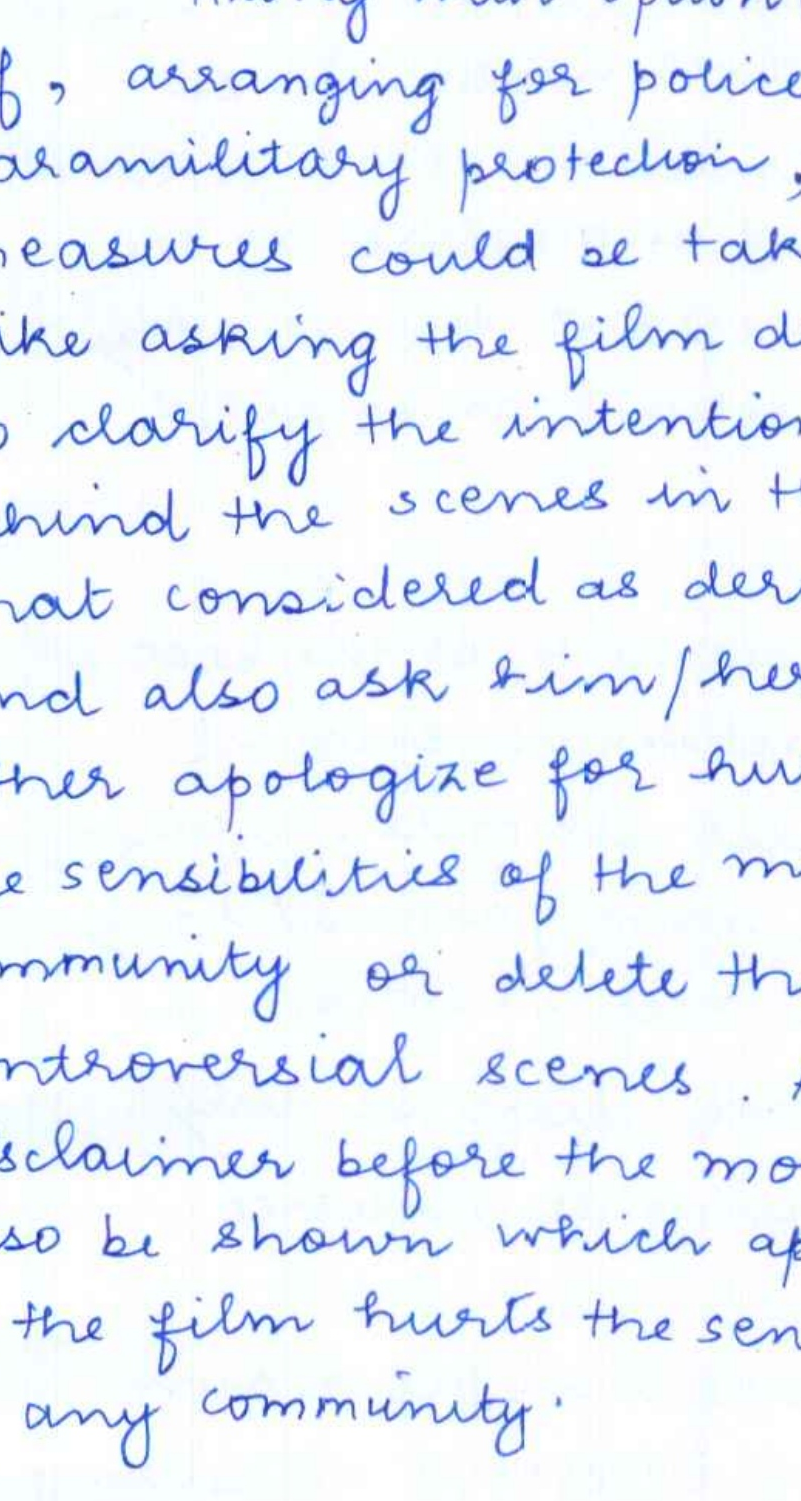 option
f, arranging for police
aramilitary protection,
easures could be tak
ike asking the film d
o clarify the intention
hind the scenes in t
hat considered as der
nd also ask him/her
ther apologize for hu
e sensibilities of the m
mmunity or delete th
ntroversial scenes. A
sclaimer before the mo
so be shown which ap
the film hurts the sen
any community.